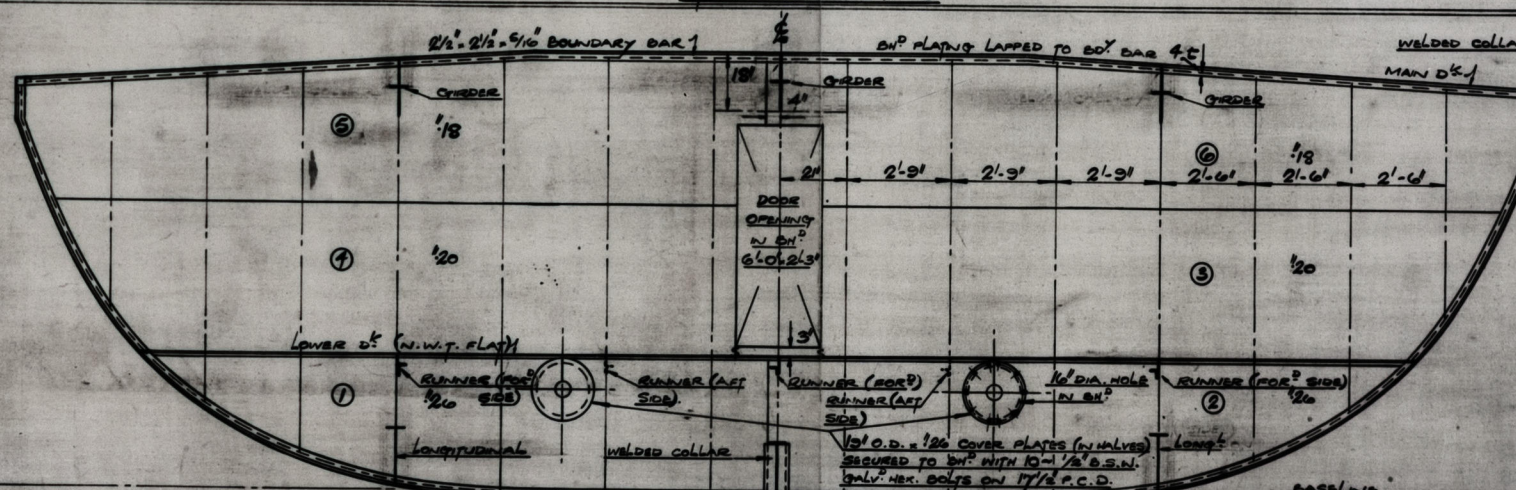 ℄
2½" × 2½" × 5/16" BOUNDARY BAR
BHᴰ PLATING LAPPED TO BDʸ BAR 4t
WELDED COLLA
MAIN DK
18"
GIRDER
GIRDER
4"
GIRDER
⑤
"18
⑥
"18
21"
2'-9"
2'-9"
2'-9"
2'-6"
2'-6"
2'-6"
DOOR
OPENING
IN BHᴰ
6'-0" × 2'-3"
④
"20
③
"20
3"
LOWER DK (N.W.T. FLAT)
RUNNER (FORᴰ
SIDE)
"26
①
RUNNER (AFT
SIDE)
RUNNER (FORᴰ)
RUNNER (AFT
SIDE)
16" DIA. HOLE
IN BHᴰ
RUNNER (FORᴰ SIDE)
"26
②
LONGITUDINAL
WELDED COLLAR
19" O.D. × "26 COVER PLATES (IN HALVES)
SECURED TO BHᴰ WITH 10~½" B.S.W.
GALVᴰ HEX. BOLTS ON 17½ P.C.D.
LONGL